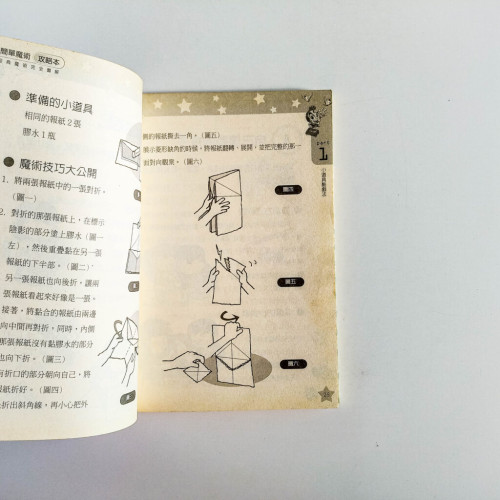 簡單魔術 攻略本
準備的小道具
相同的報紙2張
膠水1瓶
魔術技巧大公開
1. 將兩張報紙中的一張對折。
(圖一)
2. 對折的那張報紙上,在標示
陰影的部分塗上膠水(圖一
左),然後重疊黏在另一張
報紙的下半部。(圖二)
另一張報紙也向後折,讓兩
張報紙看起來好像是一張。
接著,將黏合的報紙由兩邊
向中間再對折。同時,內側
報紙沒有黏膠水的部分
也向下折。(圖三)
折口的部分朝向自己,將
報紙折好。(圖四)
折出斜角線,再小心把外
側的報紙撕去一角。(圖五)
展示菱形缺角的時候,將報紙翻轉、展開,並把完整的那一
面對向觀眾。(圖六)
圖四
圖五
圖六
part
1